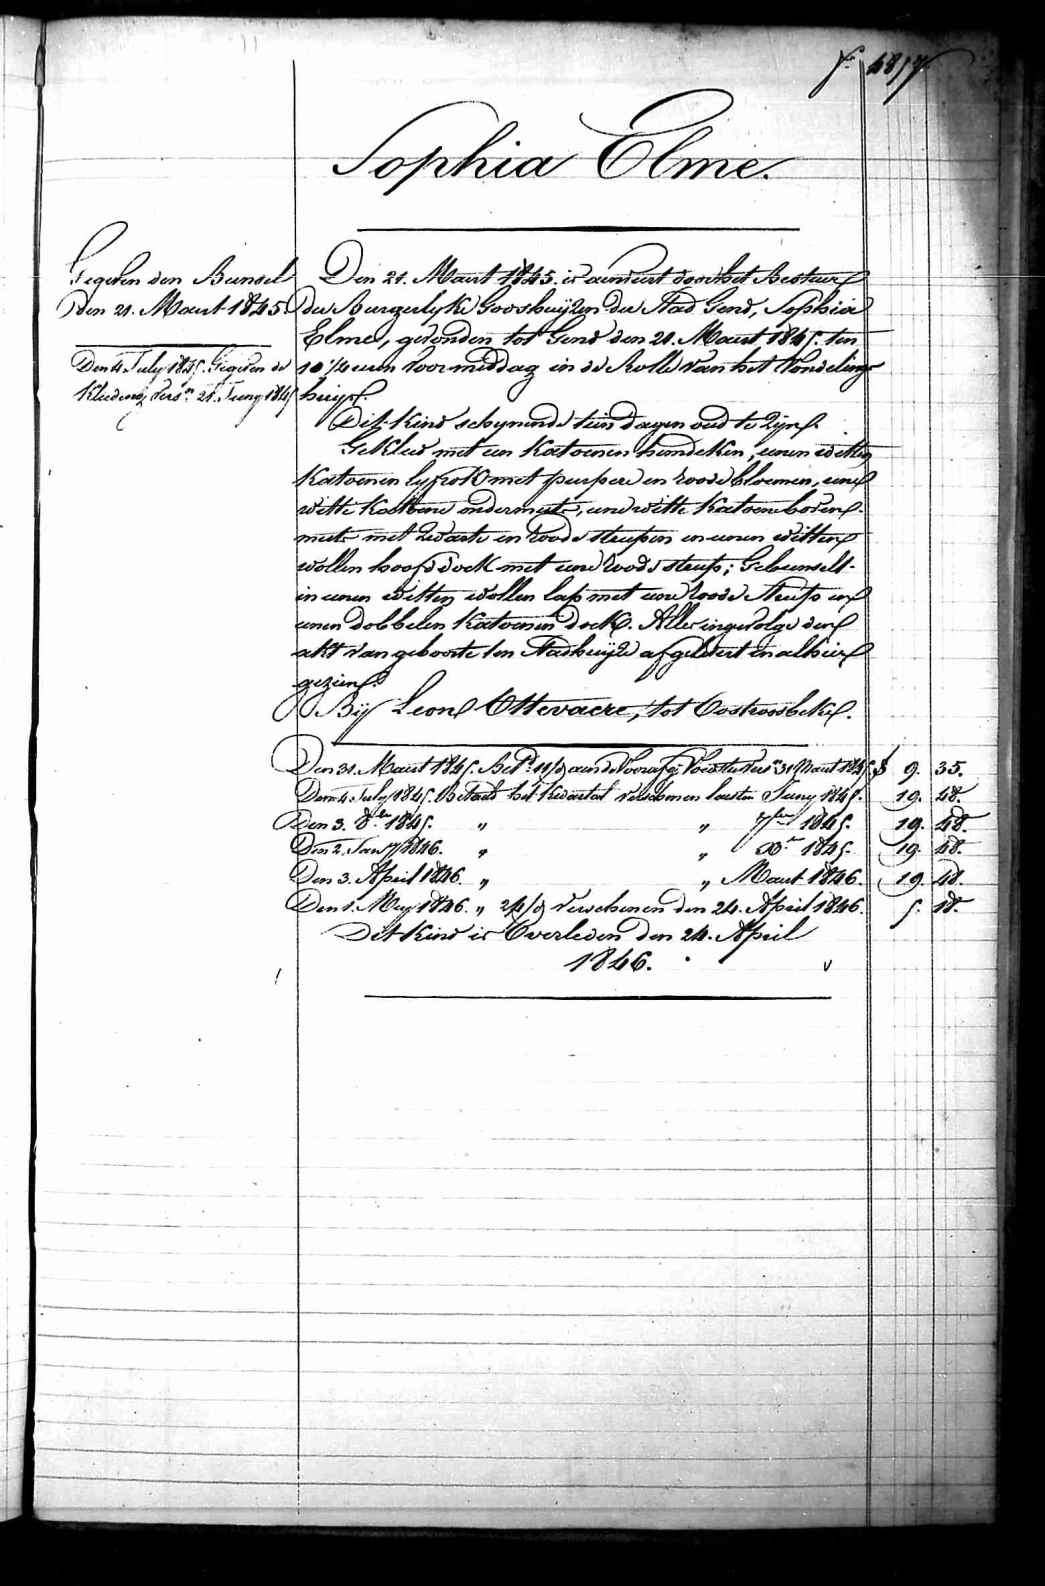 f.° 4857
Sophia Elme.
Gegeven den Bunsel
den 21. Maart 1845
Den 4 July 1845. Gegeven de
Kleeding vers.n 21. Juny 1845
Den 21. Maart 1845. is aenveert door het Bestuur
der Burgerlyke Godshuijzen der Stad Gend, Sophia
Elme, gevonden tot Gend den 21. Maart 1845. ten
10 ¼ uren voormiddag in de Rolle van het Vondeling-
huijs.
Dit kind schynende tien dagen oud te zijn.
Gekleed met een katoenen hemdeken, eenen witten
katoenen lyfrok met purpere en roode bloemen, eene
witte kattoene ondermuts, eene witte katoene boven-
muts met zwarte en roode streepen en eenen witten
wollen hoofddoek met eene roode streep; Gebunselt
in eenen witten wollen lap met eene roode streep en
eenen dobbelen katoenen doek. Alles ingevolge den
akt van geboorte ten Stadhuijze afgelevert en alhier
gezien.
Bij Leon Ottevaere, tot Oostroosbeke.
Den 31. Maart 1845. Bet.d 11/d aen de voorafg. Voedster vers.n 31 Maart 1845. 9. 35.
Den 4 July 1845. Betaeld het kwartael verschenen lesten Juny 1845. 19. 48.
Den 3. 8.bre 1845. " " 7.bre 1845. 19. 48.
Den 2. Janry 1846. " " X.bre 1845. 19. 48.
Den 3. April 1846. " " Maart 1846. 19. 48.
Den 1. Mey 1846. " 24/d verschenen den 24. April 1846. 5. 18.
Dit kind is Overleden den 24. April
1846.